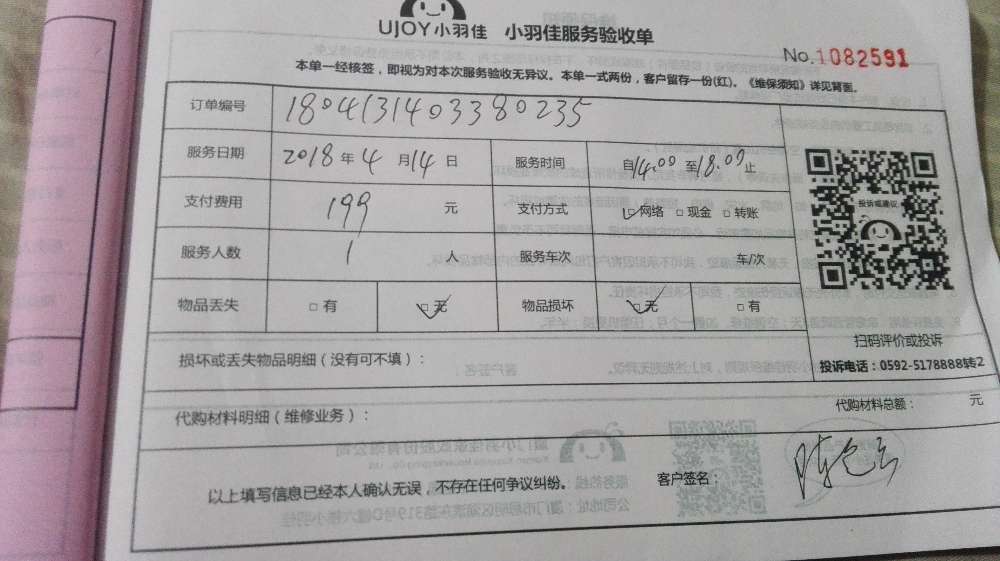 UJOY小羽佳 小羽佳服务验收单
No.1082591
本单一经核签，即视为对本次服务验收无异议。本单一式两份，客户留存一份(红)。《维保须知》详见背面。
订单编号 1804131403380235
服务日期 2018年4月14日 服务时间 自14.00至18.00止
支付费用 199 元 支付方式 ☑网络 □现金 □转账
服务人数 1 人 服务车次 车/次
物品丢失 □有 ☑无 物品损坏 ☑无 □有
投诉或建议
扫码评价或投诉
投诉电话：0592-5178888转2
损坏或丢失物品明细（没有可不填）：
代购材料明细（维修业务）： 代购材料总额： 元
以上填写信息已经本人确认无误，不存在任何争议纠纷。 客户签名：